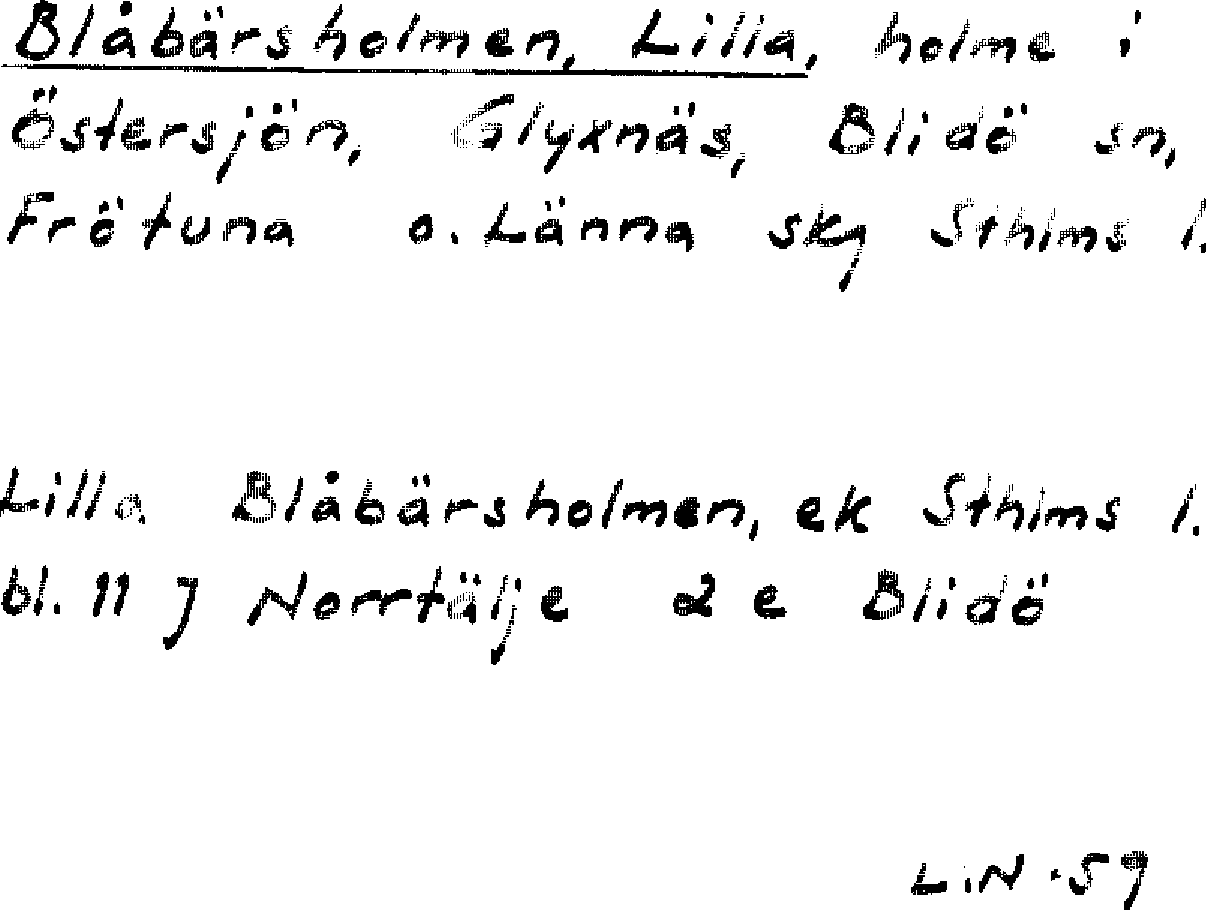 Blåbärsholmen, Lilla, holme i
Östersjön, Glyxnäs, Blidö sn,
Frötuna o. Länna skg Sthlms l.
Lilla Blåbärsholmen, ek Sthlms l.
bl. 11 J Norrtälje 2 e Blidö
L.N. 59